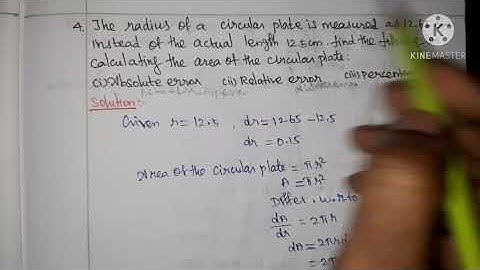 4. The radius of a circular plate is measured as 12.
instead of the actual length 12.5cm. find the
calculating the area of the circular plate:
(i) Absolute error (ii) Relative error (iii) percent
Solution:-
Given r = 12.5, dr = 12.65 - 12.5
dr = 0.15
Area of the circular plate = πr²
A = πr²
Differ. w.r. to
dA/dr = 2πr
dA = 2πr
= 2π
KINEMASTER